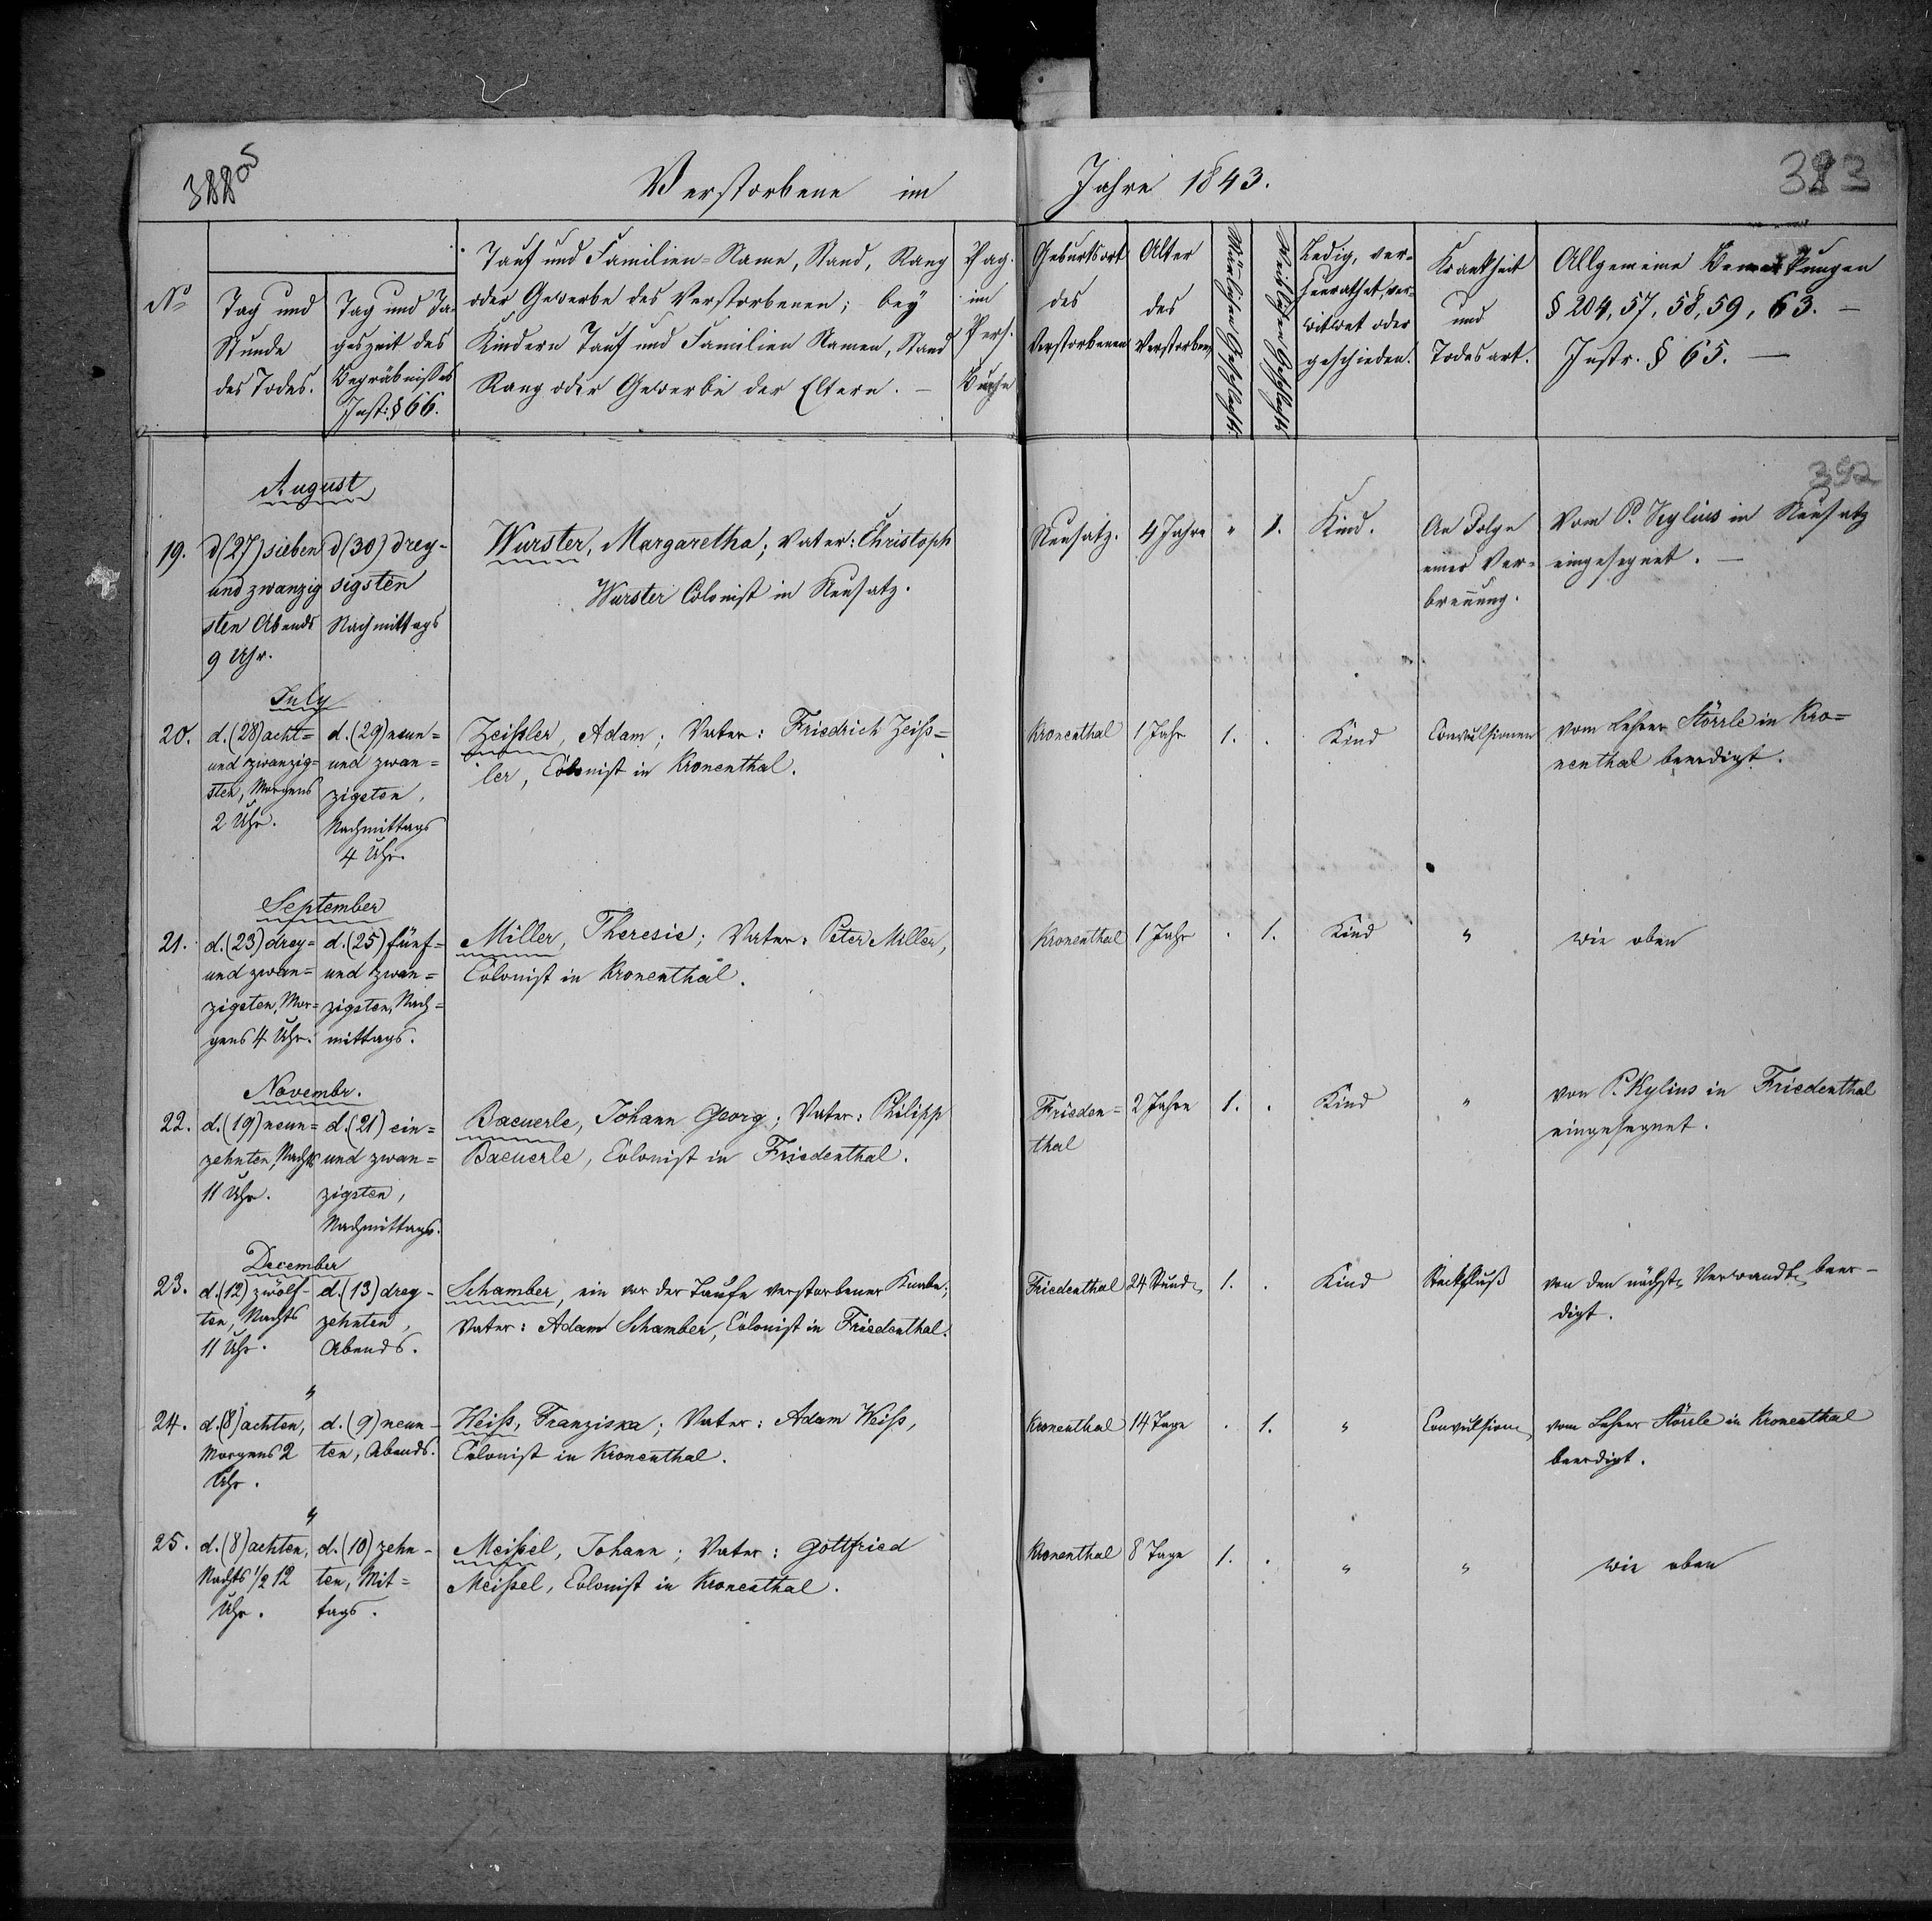 Verstorbene im Jahre 1843.
383
No
Tag und
Stunde
des Todes.
Tag und Ta-
geszeit des
Begräbnisses
Inst: § 66.
Tauf und Familien-Name, Stand, Rang
oder Gewerbe des Verstorbenen; bey
Kindern Tauf und Familien Namen, Stand
Rang oder Gewerbe der Eltern. —
Pag.
im
Pers.
Buche
Geburtsort
des
Verstorbenen
Alter
des
Verstorben
Männlichen Geschlechts.
Weiblichen Geschlechts
Ledig, ver-
heurathet, ver-
witwet oder
geschieden.
Krankheit
und
Todesart.
Allgemeine Bemerkungen
§ 204, 57, 58, 59, 63. —
Instr. § 65. —
392
August
19.
d (27) sieben
und zwanzig
sten Abends
9 Uhr.
d (30) drey-
sigsten
Nachmittags
Wurster, Margaretha; Vater: Christoph
Wurster Colonist in Neusatz.
Neusatz.
4 Jahre
"
1.
Kind.
An Folge
einer Ver-
brenung.
Vom P. Kylius in Neusatz
eingesegnet. —
July
20.
d. (28) acht=
und zwanzig=
sten, Morgens
2 Uhr.
d. (29) neun=
und zwan=
zigsten,
Nachmittags
4 Uhr.
Zeissler, Adam; Vater: Friedrich Zeiss=
ler, Colonist in Kronenthal.
Kronenthal
1 Jahr
1.
.
Kind
Convulsionen
vom Lehrer Störrle in Kro=
nenthal beerdigt.
September
21.
d. (23) drey=
und zwan=
zigsten, Mor=
gens 4 Uhr.
d. (25) fünf=
und zwan=
zigsten, Nach=
mittags.
Miller, Theresie; Vater: Peter Miller,
Colonist in Kronenthal.
Kronenthal
1 Jahr
.
1.
Kind
"
wie oben
Novembr.
22.
d. (19) neun=
zehnten, Nachts
11 Uhr.
d. (21) ein=
und zwan=
zigsten,
Nachmittags.
Baeuerle, Johann Georg; Vater: Philipp
Baeuerle, Colonist in Friedenthal.
Frieden=
thal
2 Jahre
1.
.
Kind
"
von P. Kylius in Friedenthal
eingesegnet.
December
23.
d. (12) zwölf-
ten, Nachts
11 Uhr.
d. (13) drey-
zehnten,
Abends.
Schamber, ein vor der Taufe verstorbener Knabe;
Vater: Adam Schamber, Colonist in Friedenthal.
Friedenthal
24 Stund
1.
.
Kind
Steckfluß
von den nächst Verwandt beer-
digt.
"
24.
d. (8) achten,
Morgens 2
Uhr.
d. (9) neun-
ten, Abends.
Heiss, Franziska; Vater: Adam Weiss,
Colonist in Kronenthal.
Kronenthal
14 Tage
.
1.
"
Convulsion
vom Lehrer Störrle in Kronenthal
beerdigt.
"
25.
d. (8) achten,
Nachts 1/2 12
Uhr.
d. (10) zehn-
ten, Mit=
tags.
Meissel, Johann; Vater: Gottfried
Meissel, Colonist in Kronenthal.
Kronenthal
8 Tage
1.
.
"
"
wie oben